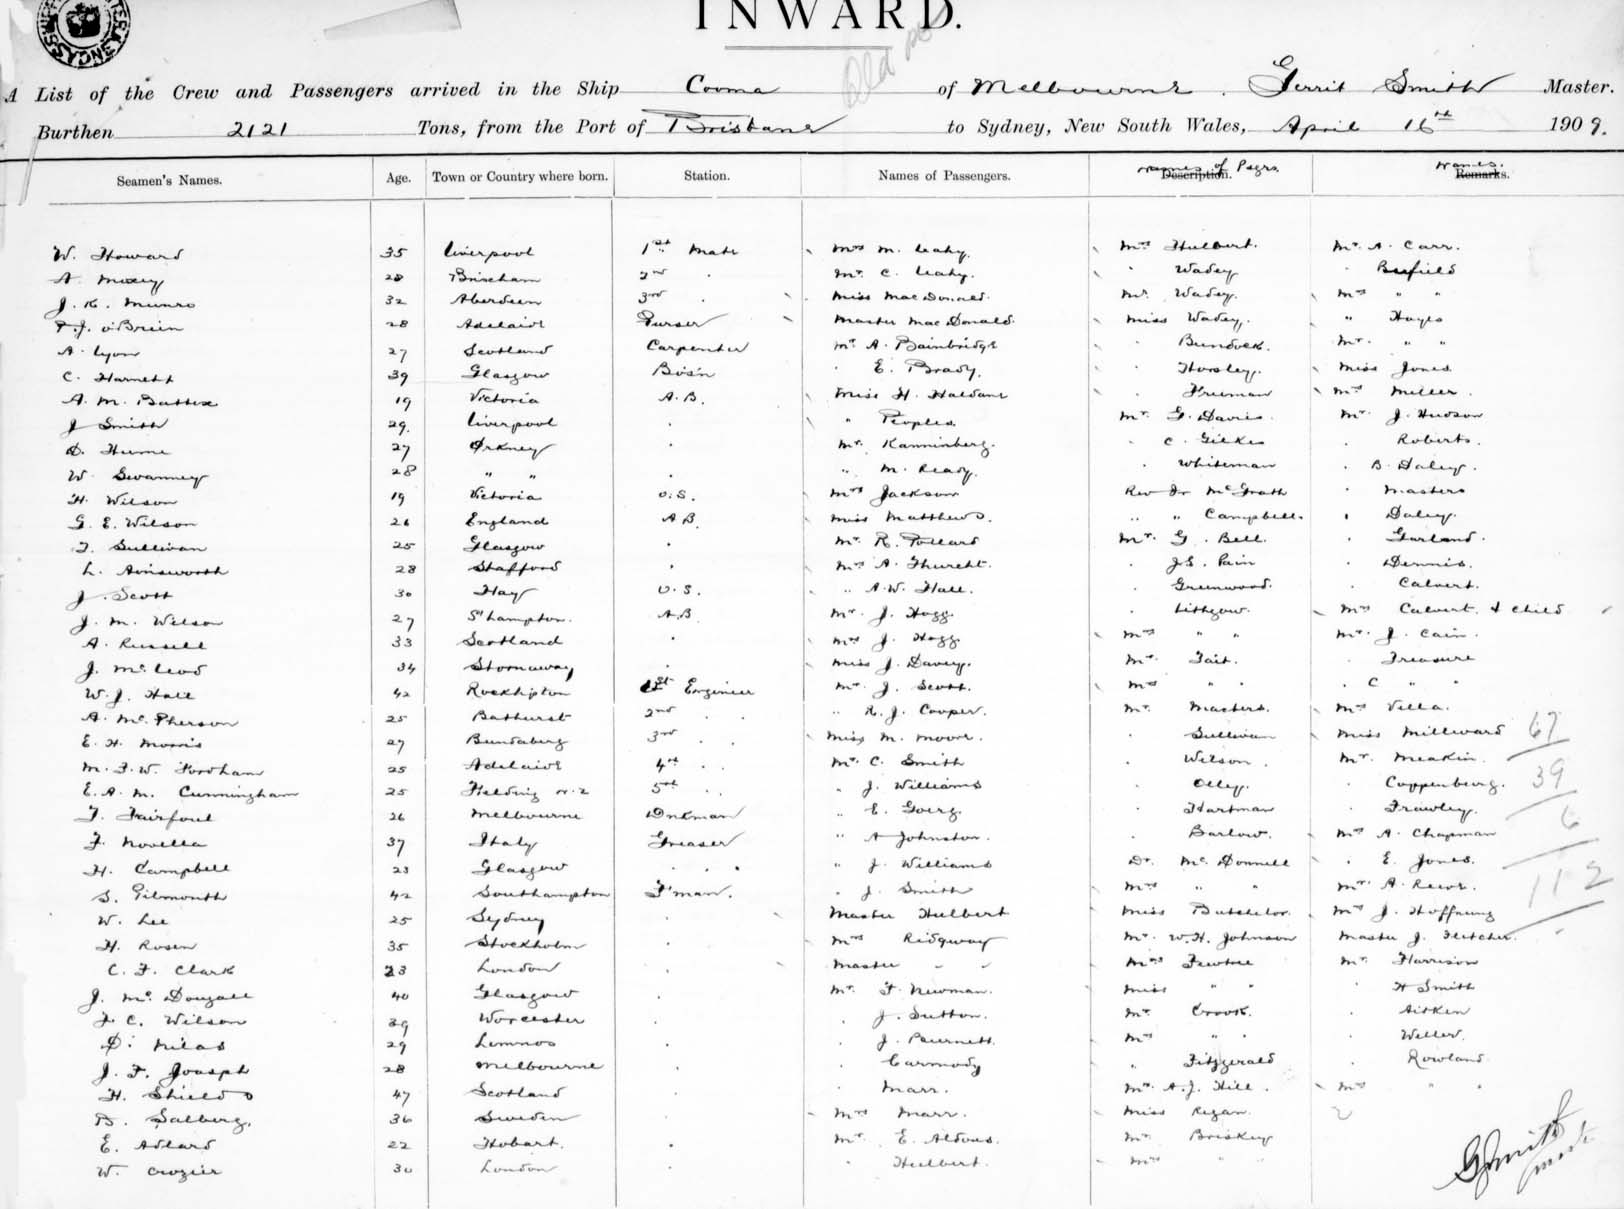 INWARD.
A List of the Crew and Passengers arrived in the Ship Cooma of Melbourne, Gerrit Smith Master.
Burthen 2121 Tons, from the Port of Brisbane to Sydney, New South Wales, April 16th 1909.
Seamen's Names. Age. Town or Country where born. Station. Names of Passengers. Names of Psgrs. Description. Names. Remarks.
W. Howard 35 Liverpool 1st Mate Mrs M. Leahy. Mrs Hulbert. Mr. A. Carr.
A. Moxey 28 Brixham 2nd . Mr. C. Leahy. " Wadey "
J. K. Munro 32 Aberdeen 3rd . Miss MacDonald. Mr. Wadey. Mrs " "
O'Brien 28 Adelaide Purser Master MacDonald. Miss Wadey. " Hayes
A. Lyon 27 Scotland Carpenter Mr A. Bainbridge " Bundock. Mr. " "
C. Harnett 39 Glasgow Bos'n . E. Brady. . Horsley. Miss Jones
A. M. 19 Victoria A.B. Miss H. Haldane . Freeman Mrs Miller.
J Smith 29. Liverpool . " Peoples. Mr. G. Davies. Mr. J. Hudson
D. Hume 27 Orkney . Mr. Kanninberg. . C. Gilkes . Roberts.
W. Swanney 28 " " . " M. Ready. . Whiteman . B. Daley.
H. Wilson 19 Victoria O.S. Mrs Jackson Rev Fr McGrath . Masters
G. E. Wilson 26 England A.B. Miss Matthews. " " Campbell. . Daley.
T. Sullivan 25 Glasgow . Mr. R. Pollard Mr. G. Bell. . Garland.
L. Ainsworth 28 Stafford . Mrs A. . J.S. Pain . Dennis.
J. Scott 30 Hay O.S. " A.W. Hall. . Greenwood. . Calvert.
J. M. Wilson 27 S'hampton. A.B. Mr. J. Hogg . Lithgow. Mrs Calvert. & child
A. Russell 33 Scotland . Mrs J. Hogg Mrs " " Mr. J. Cain.
J. McLeod 34 Stornaway . Miss J. Davey. Mr. Tait. . Treasure
W. J. Hall 42 Rockhpton 1st Engineer Mr. J. Scott. Mrs " " . C " "
A. McPherson 25 Bathurst 2nd . . " R. J. Cooper. Mr. Masters. Mrs Vella.
E. H. Morris 27 Bundaberg 3rd . . Miss M. Moore. . Sullivan Miss Millward 67
M. F. W. Fordham 25 Adelaide 4th . . Mr. C. Smith . Wilson. Mr. Meakin.
E. A. M. Cunningham 25 Fielding N.Z 5th . . " J. Williams . Olley. . Coppenburg. 39
T. Fairfoul 26 Melbourne Dnkman " E. Goerg. . Hartman . Frawley. 6
F. Novella 37 Italy Greaser " A Johnston. . Barlow. Mrs A. Chapman
H. Campbell 23 Glasgow . . " J. Williams Dr. McDonnell . E. Jones.
S. Gilmouth 42 Southampton F'man. " J. Smith Mrs " " Mr. A. 112
W. Lee 25 Sydney . Master Hulbert Miss Batchelor. Mrs J. Hoffnung
H. Rosen 35 Stockholm . Mrs Ridgway Mr. W.H. Johnson Master J. Fletcher.
C. F. Clark 23 London . Master " " Mrs Mr. Harrison
J. McDougall 40 Glasgow . Mr. F. Newman. Miss " " . H Smith
J. C. Wilson 39 Worcester . . J. Sutton. Mr. Crook. . Aitken
D. Milas 29 Lemnos . . J. Mrs " " . Weller.
J. F. Joseph 28 Melbourne . . Carmody " Fitzgerald . Rowland.
H. Shields 47 Scotland . . Marr. Mr. A.J. Hill. Mrs " "
B. Salberg. 36 Sweden . Mrs Marr. Miss Regan.
E. Adlard 22 Hobart. . Mr. E. Aldous. Mr. Briskey
W. Crozier 30 London . " Hulbert. Mrs " "
G Smith